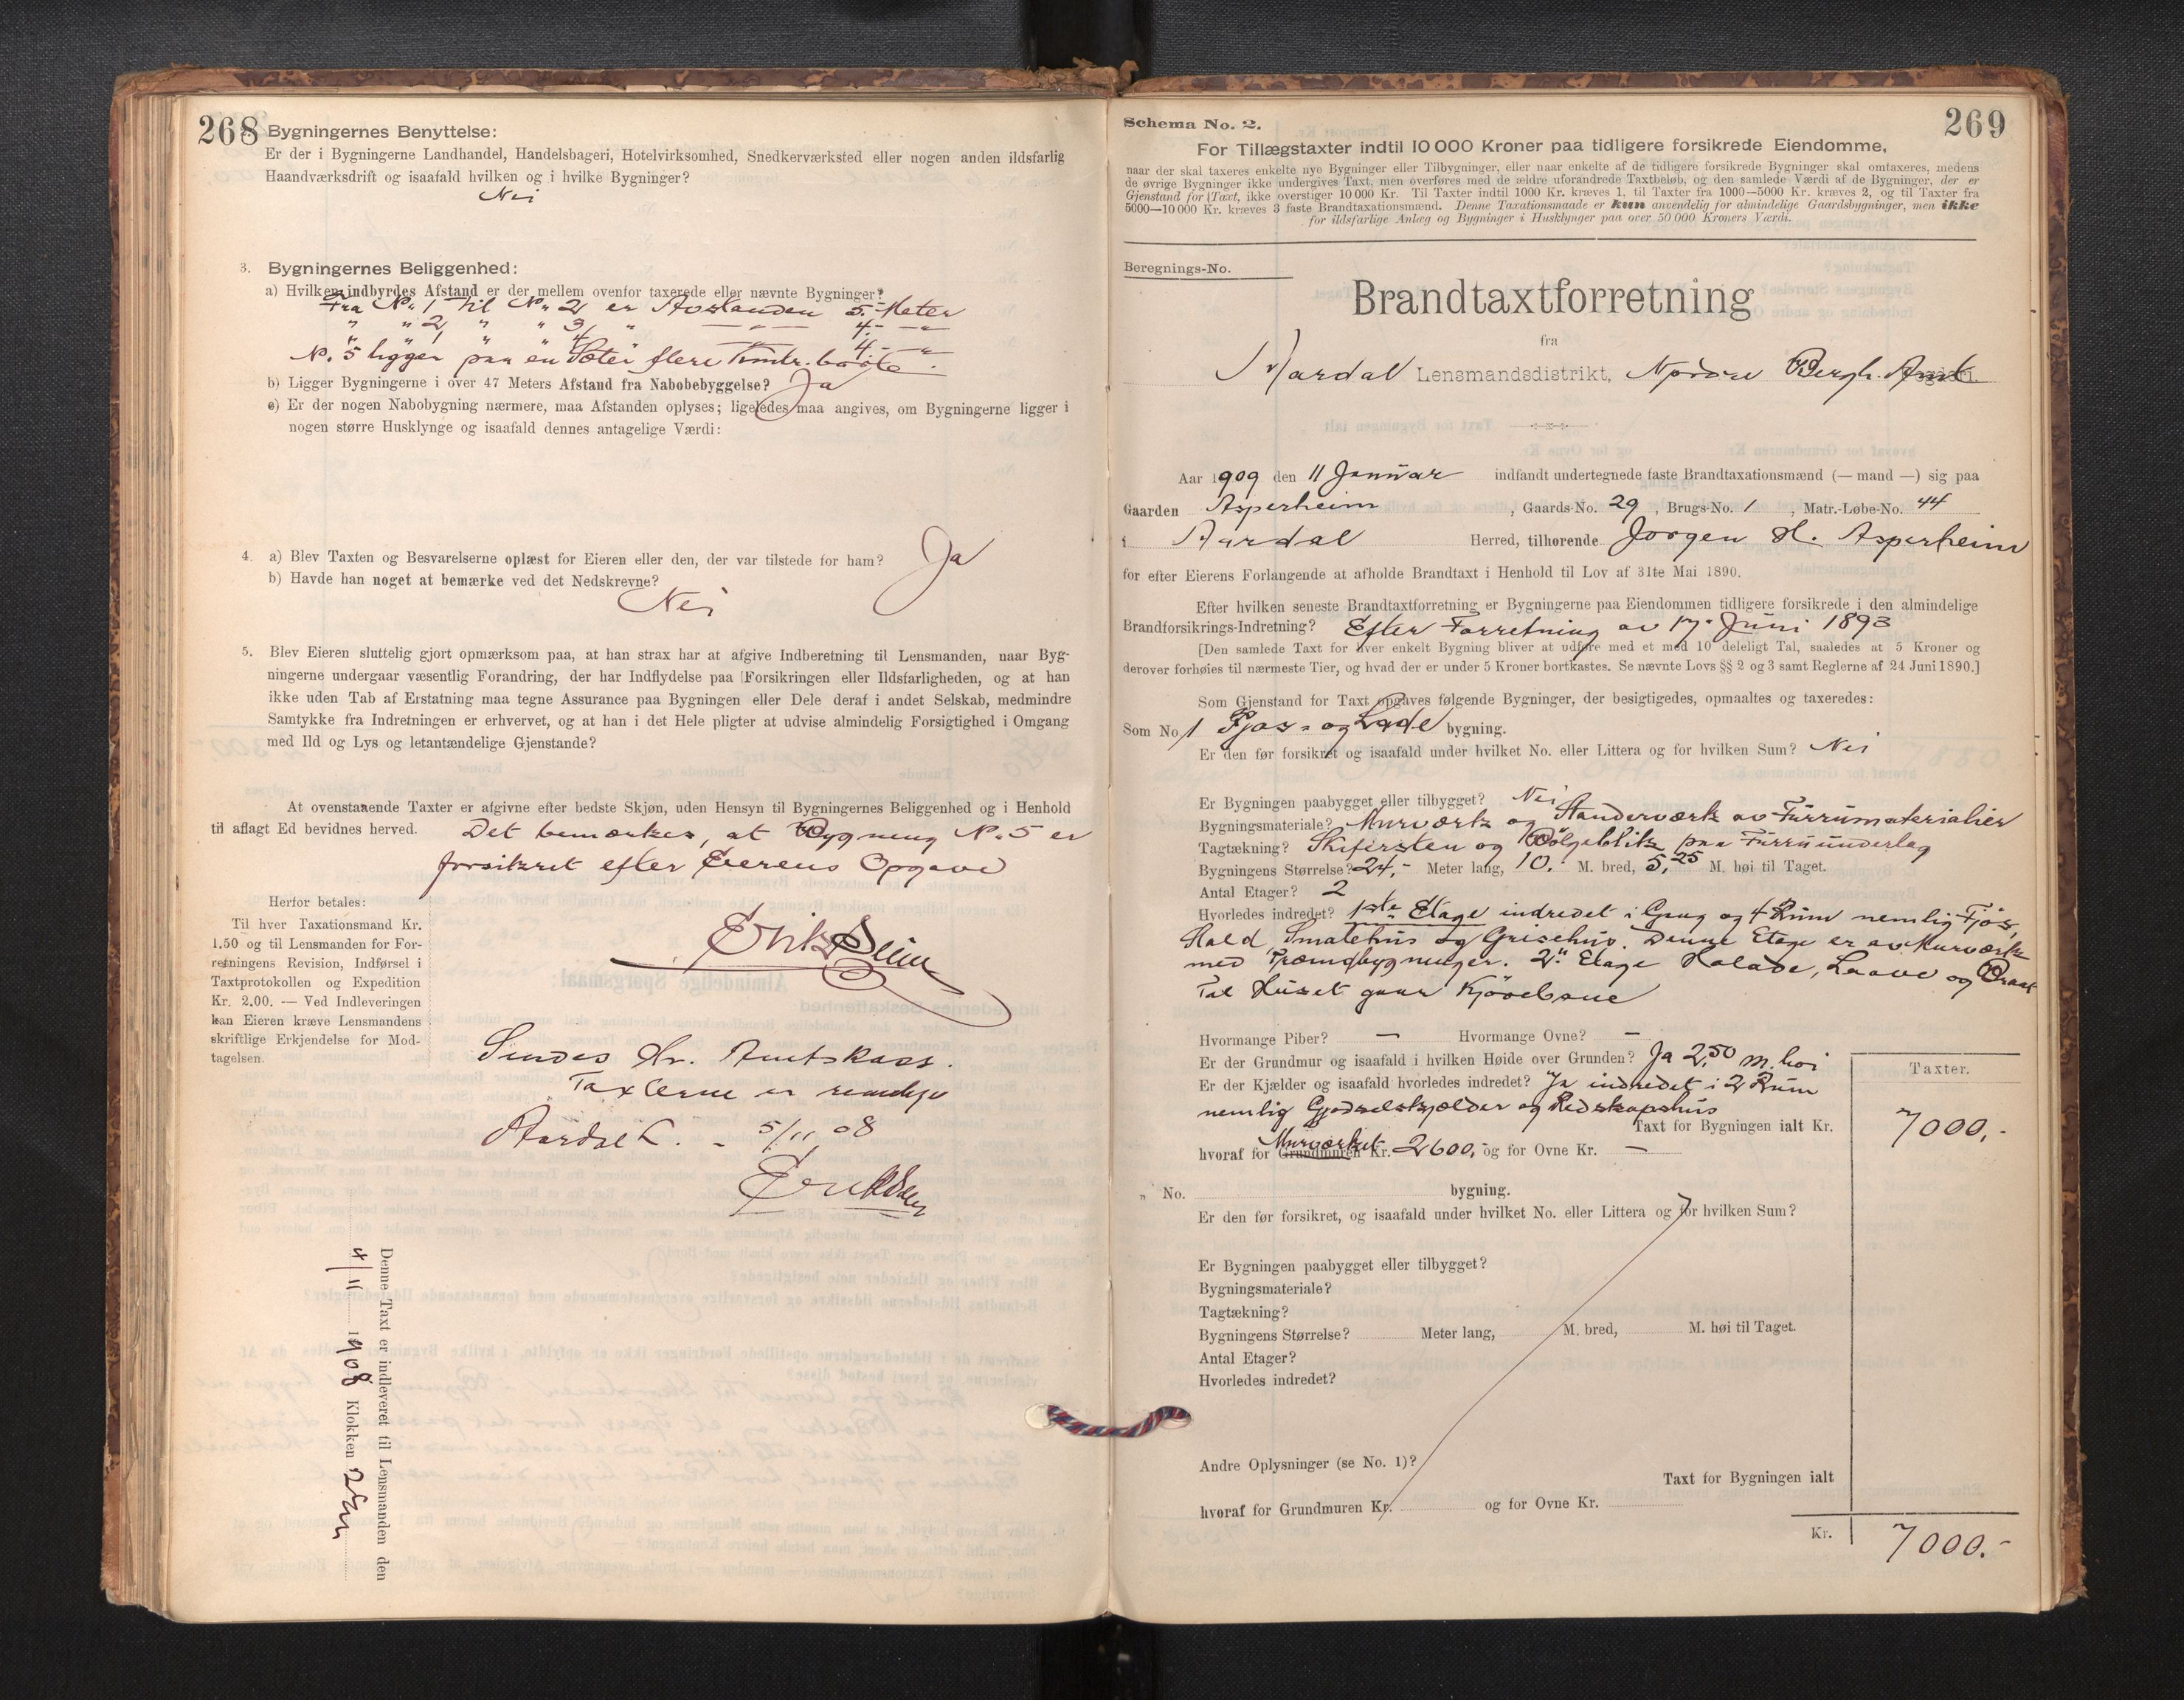 268 Bygningernes Benyttelse:
Er der i Bygningerne Landhandel, Handelsbageri, Hotelvirksomhed, Snedkerværksted eller nogen anden ildsfarlig
Haandværksdrift og isaafald hvilken og i hvilke Bygninger?
Nei
3. Bygningernes Beliggenhed:
a) Hvilken indbyrdes Afstand er der mellem ovenfor taxerede eller nævnte Bygninger?
Fra No 1 til No 2 er Avstanden 5.- Meter
" " 2 " " 3 " — " — 4.- — " —
" " 1 " " 4 4.- "
No. 5 ligger paa en Støter flere Kmtr. borte.
b) Ligger Bygningerne i over 47 Meters Afstand fra Nabobebyggelse? Ja
c) Er der nogen Nabobygning nærmere, maa Afstanden oplyses; ligeledes maa angives, om Bygningerne ligger i
nogen større Husklynge og isaafald dennes antagelige Værdi:
4. a) Blev Taxten og Besvarelserne oplæst for Eieren eller den, der var tilstede for ham? Ja
b) Havde han noget at bemærke ved det Nedskrevne?
Nei
5. Blev Eieren sluttelig gjort opmærksom paa, at han strax har at afgive Indberetning til Lensmanden, naar Byg-
ningerne undergaar væsentlig Forandring, der har Indflydelse paa Forsikringen eller Ildsfarligheden, og at han
ikke uden Tab af Erstatning maa tegne Assurance paa Bygningen eller Dele deraf i andet Selskab, medmindre
Samtykke fra Indretningen er erhvervet, og at han i det Hele pligter at udvise almindelig Forsigtighed i Omgang
med Ild og Lys og letantændelige Gjenstande?
At ovenstaaende Taxter er afgivne efter bedste Skjøn, uden Hensyn til Bygningernes Beliggenhed og i Henhold
til aflagt Ed bevidnes herved. Det bemærkes, at Bygning No 5 er
forsikret efter Eierens Opgave
Herfor betales:
Til hver Taxationsmand Kr.
1.50 og til Lensmanden for For-
retningens Revision, Indførsel i
Taxtprotokollen og Expedition
Kr. 2.00. — Ved Indleveringen
kan Eieren kræve Lensmandens
skriftlige Erkjendelse for Mod-
tagelsen.
Erik Seim
Sendes Hr. Amtskass.
Taxterne er rimelige
Aardal L. - 5/11 08
Denne Taxt er indleveret til Lensmanden den
4/11 1908 Klokken 2 Em
269
Schema No. 2.
For Tillægstaxter indtil 10 000 Kroner paa tidligere forsikrede Eiendomme,
naar der skal taxeres enkelte nye Bygninger eller Tilbygninger, eller naar enkelte af de tidligere forsikrede Bygninger skal omtaxeres, medens
de øvrige Bygninger ikke undergives Taxt, men overføres med de ældre uforandrede Taxtbeløb, og den samlede Værdi af de Bygninger, der er
Gjenstand for Taxt, ikke overstiger 10 000 Kr. Til Taxter indtil 1000 Kr. kræves 1, til Taxter fra 1000—5000 Kr. kræves 2, og til Taxter fra
5000—10 000 Kr. kræves 3 faste Brandtaxationsmænd. Denne Taxationsmaade er kun anvendelig for almindelige Gaardsbygninger, men ikke
for ildsfarlige Anlæg og Bygninger i Husklynger paa over 50 000 Kroners Værdi.
Beregnings-No.
Brandtaxtforretning
fra
Aardal Lensmandsdistrikt, Nordre Bergh. Amt
Aar 1909 den 11 Januar indfandt undertegnede faste Brandtaxationsmænd (— mand —) sig paa
Gaarden Asperheim, Gaards-No. 29, Brugs-No. 1, Matr.-Løbe-No. 44
i Aardal Herred, tilhørende Jørgen H. Asperheim
for efter Eierens Forlangende at afholde Brandtaxt i Henhold til Lov af 31te Mai 1890.
Efter hvilken seneste Brandtaxtforretning er Bygningerne paa Eiendommen tidligere forsikrede i den almindelige
Brandforsikrings-Indretning? Efter Forretning av 17. Juni 1893
[Den samlede Taxt for hver enkelt Bygning bliver at udføre med et med 10 deleligt Tal, saaledes at 5 Kroner og
derover forhøies til nærmeste Tier, og hvad der er under 5 Kroner bortkastes. Se nævnte Lovs §§ 2 og 3 samt Reglerne af 24 Juni 1890.]
Som Gjenstand for Taxt opgaves følgende Bygninger, der besigtigedes, opmaaltes og taxeredes:
Som No 1 Fjøs- og Lade bygning.
Er den før forsikret og isaafald under hvilket No. eller Littera og for hvilken Sum? Nei
Er Bygningen paabygget eller tilbygget? Nei
Bygningsmateriale? Murværk og Standerværk av Furrumaterialier
Tagtækning? Skifersten og Bølgeblik paa Furruunderlag
Bygningens Størrelse? 24,- Meter lang, 10. M. bred, 5,25 M. høi til Taget.
Antal Etager? 2
Hvorledes indredet? 1ste Etage indredet i Gang og 4 Rum nemlig Fjøs,
Stald, Smalehus og Grisehus. Denne Etage er av Murværk
med Træombygninger. 2. Etage Høladе, Laave og
Til Huset gaar Kjørebane
Hvormange Piber? — Hvormange Ovne? —
Er der Grundmur og isaafald i hvilken Høide over Grunden? Ja 2,50 m. høi
Er der Kjælder og isaafald hvorledes indredet? Ja indredet i 2 Rum
nemlig Gjødselskjælder og Redskapshus
Taxter.
Taxt for Bygningen ialt Kr. 7000.-
hvoraf for Grundmuren Murværket Kr. 2600,- og for Ovne Kr. —
" No. bygning.
Er den før forsikret, og isaafald under hvilket No. eller Littera og for hvilken Sum?
Er Bygningen paabygget eller tilbygget?
Bygningsmateriale?
Tagtækning?
Bygningens Størrelse? Meter lang, M. bred, M. høi til Taget.
Antal Etager?
Hvorledes indredet?
Andre Oplysninger (se No. 1)?
Taxt for Bygningen ialt
hvoraf for Grundmuren Kr. og for Ovne Kr.
Kr. 7000.-